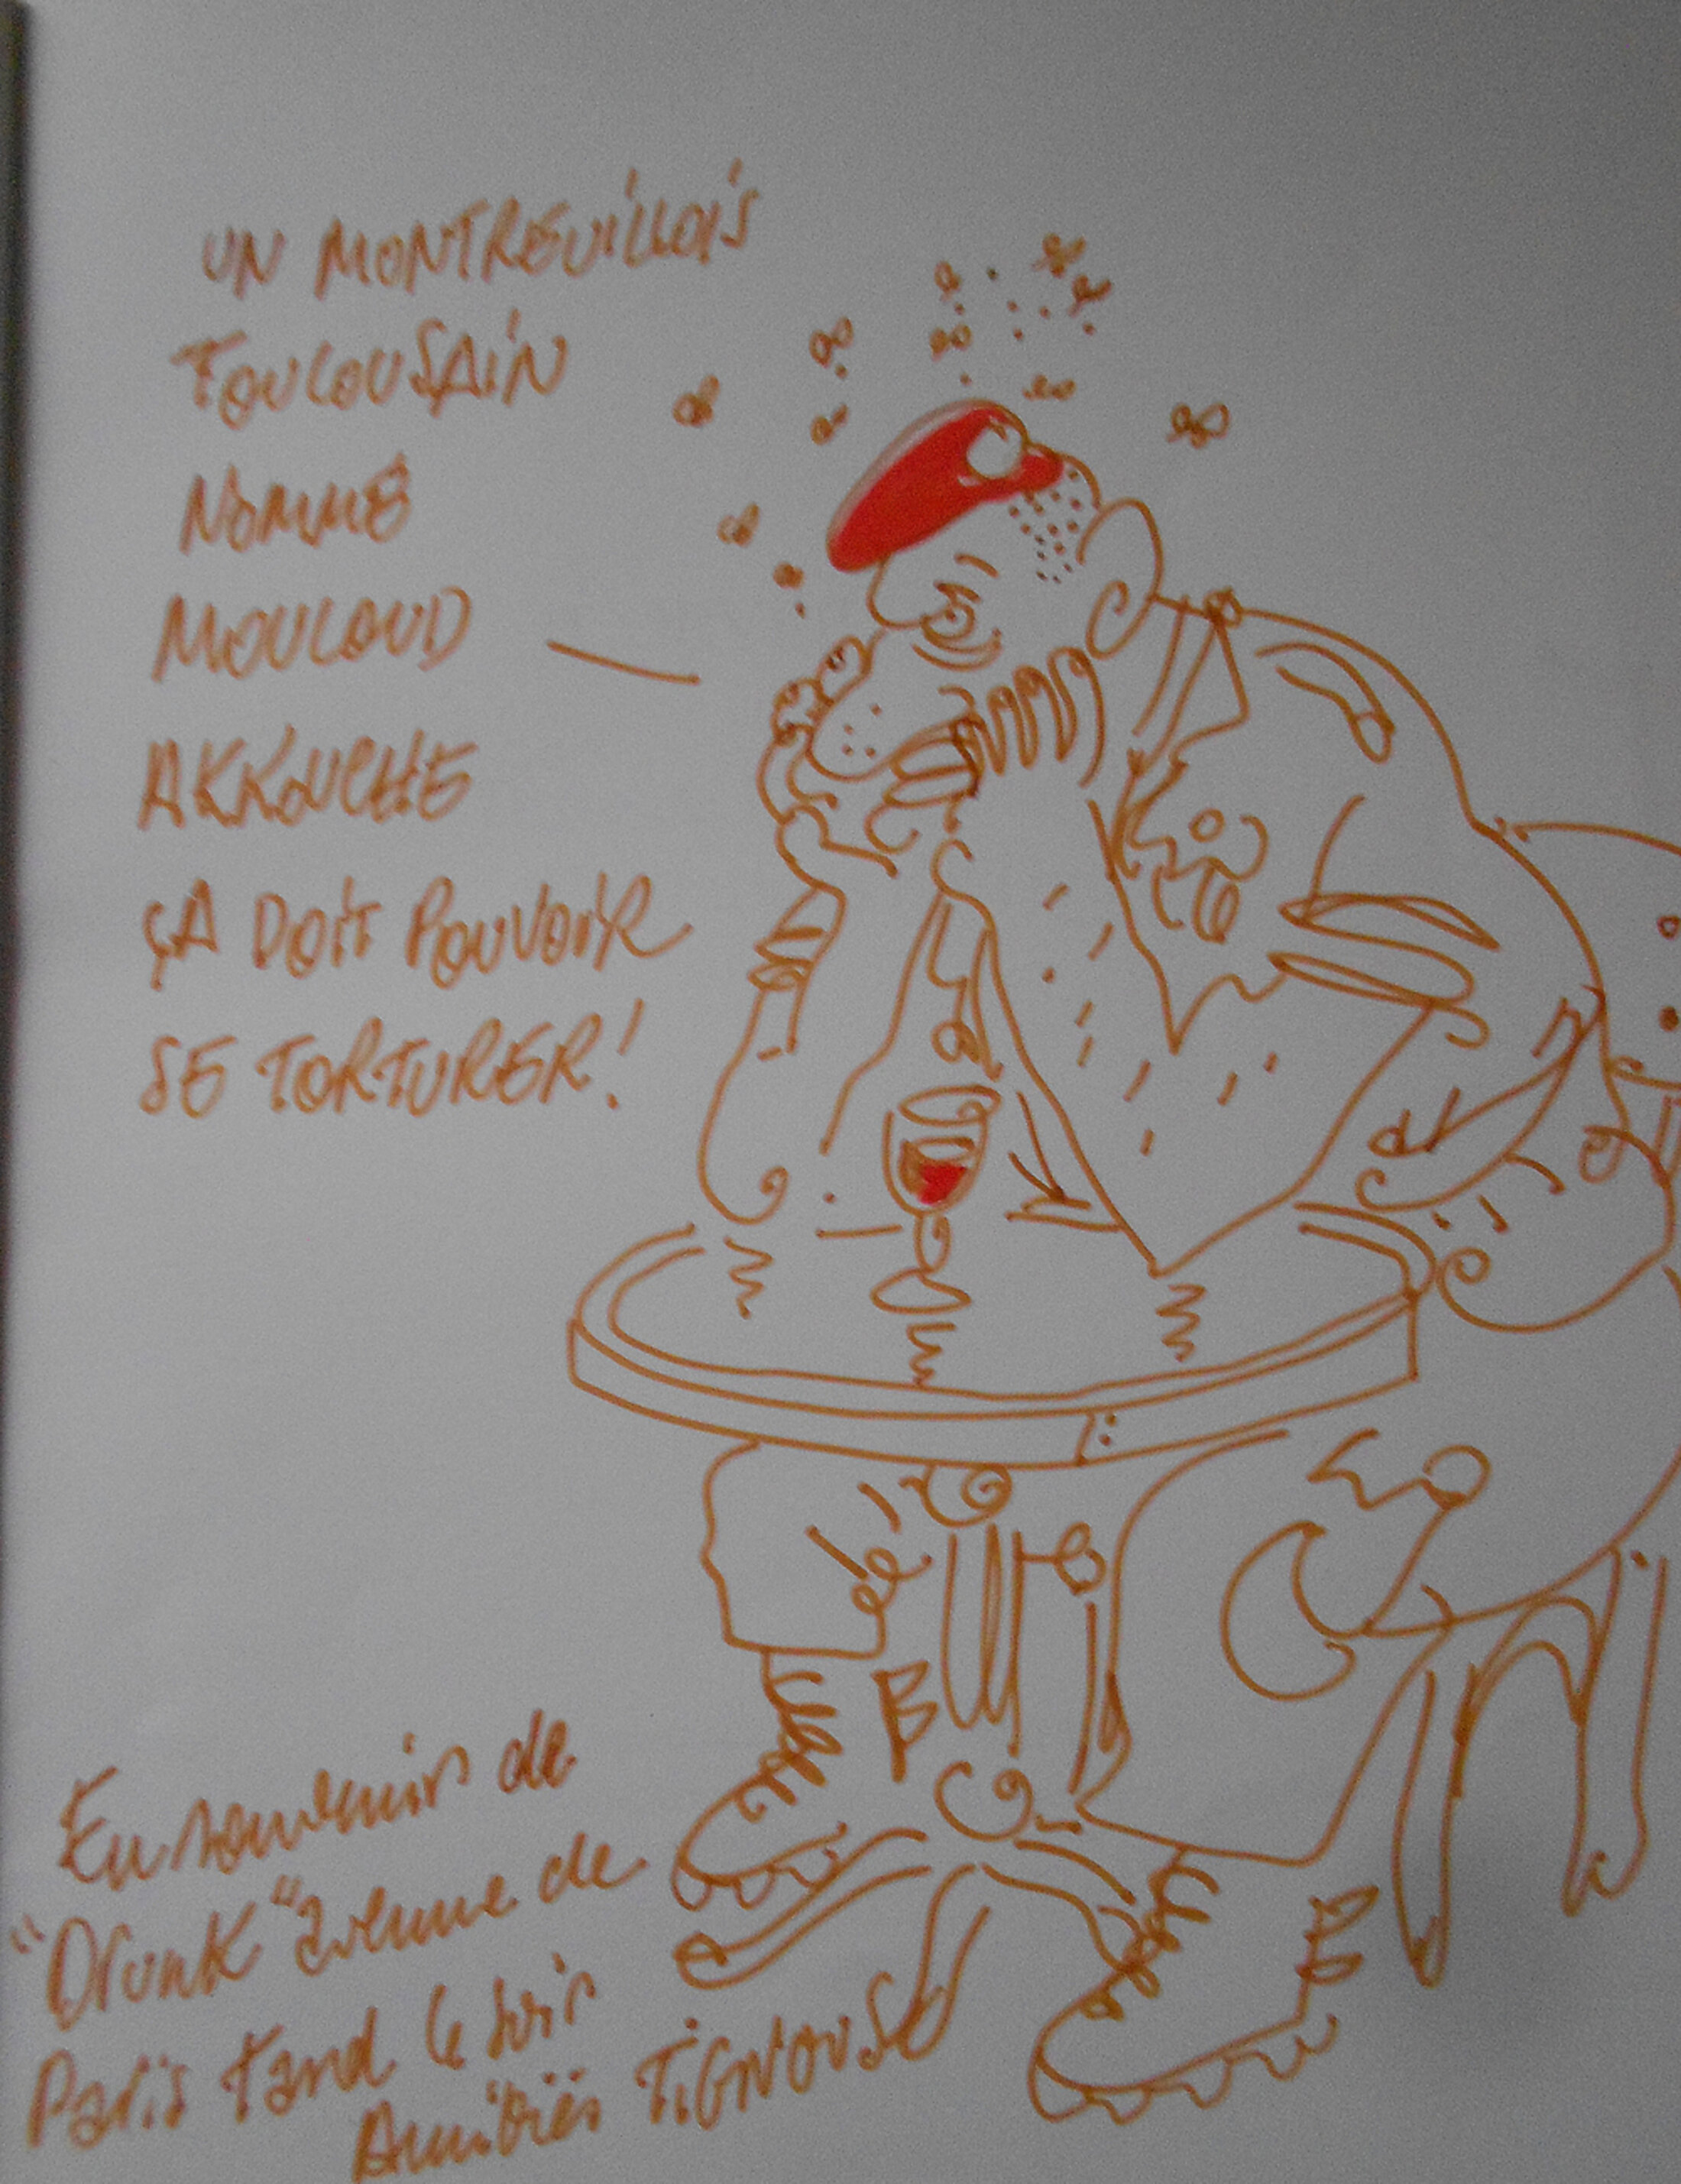 UN MONTREUILLOIS
TOULOUSAIN
NOMMÉ
MOULOUD
AKKOUCHE
ÇA DOIT POUVOIR
SE TORTURER!
En souvenir de
"Drunk" avenue de
Paris tard le soir
Amitiés TIGNOUS